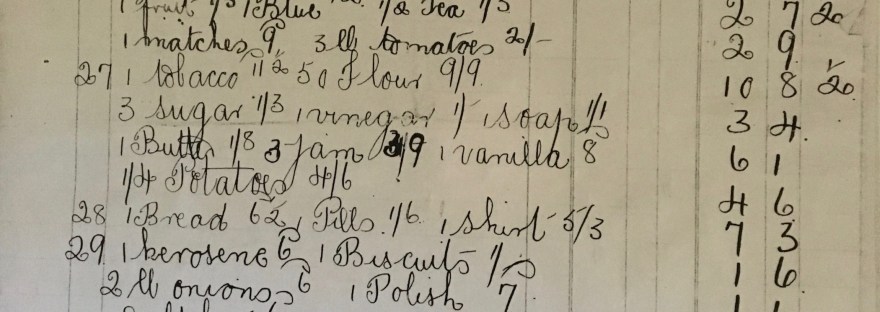 1 fruit 1/3 1 Blue 1/2 Tea 1/3 2 7 1/2
1 matches 9 3 lb tomatoes 2/- 2 9
27 1 tobacco 11 1/2 50 Flour 9/9 10 8 1/2
3 sugar 1/3 1 vinegar 1/- 1 soap 1/1 3 4
1 Butter 1/8 3 jam 3/9 1 vanilla 8 6 1
1/4 Potatoes 4/6 4 6
28 1 Bread 6 1/2 1 Pills 1/6 1 shirt 5/3 7 3
29 1 kerosene 6 1 Biscuits 1/- 1 6
2 lb onions 6 1 Polish 7 1 1